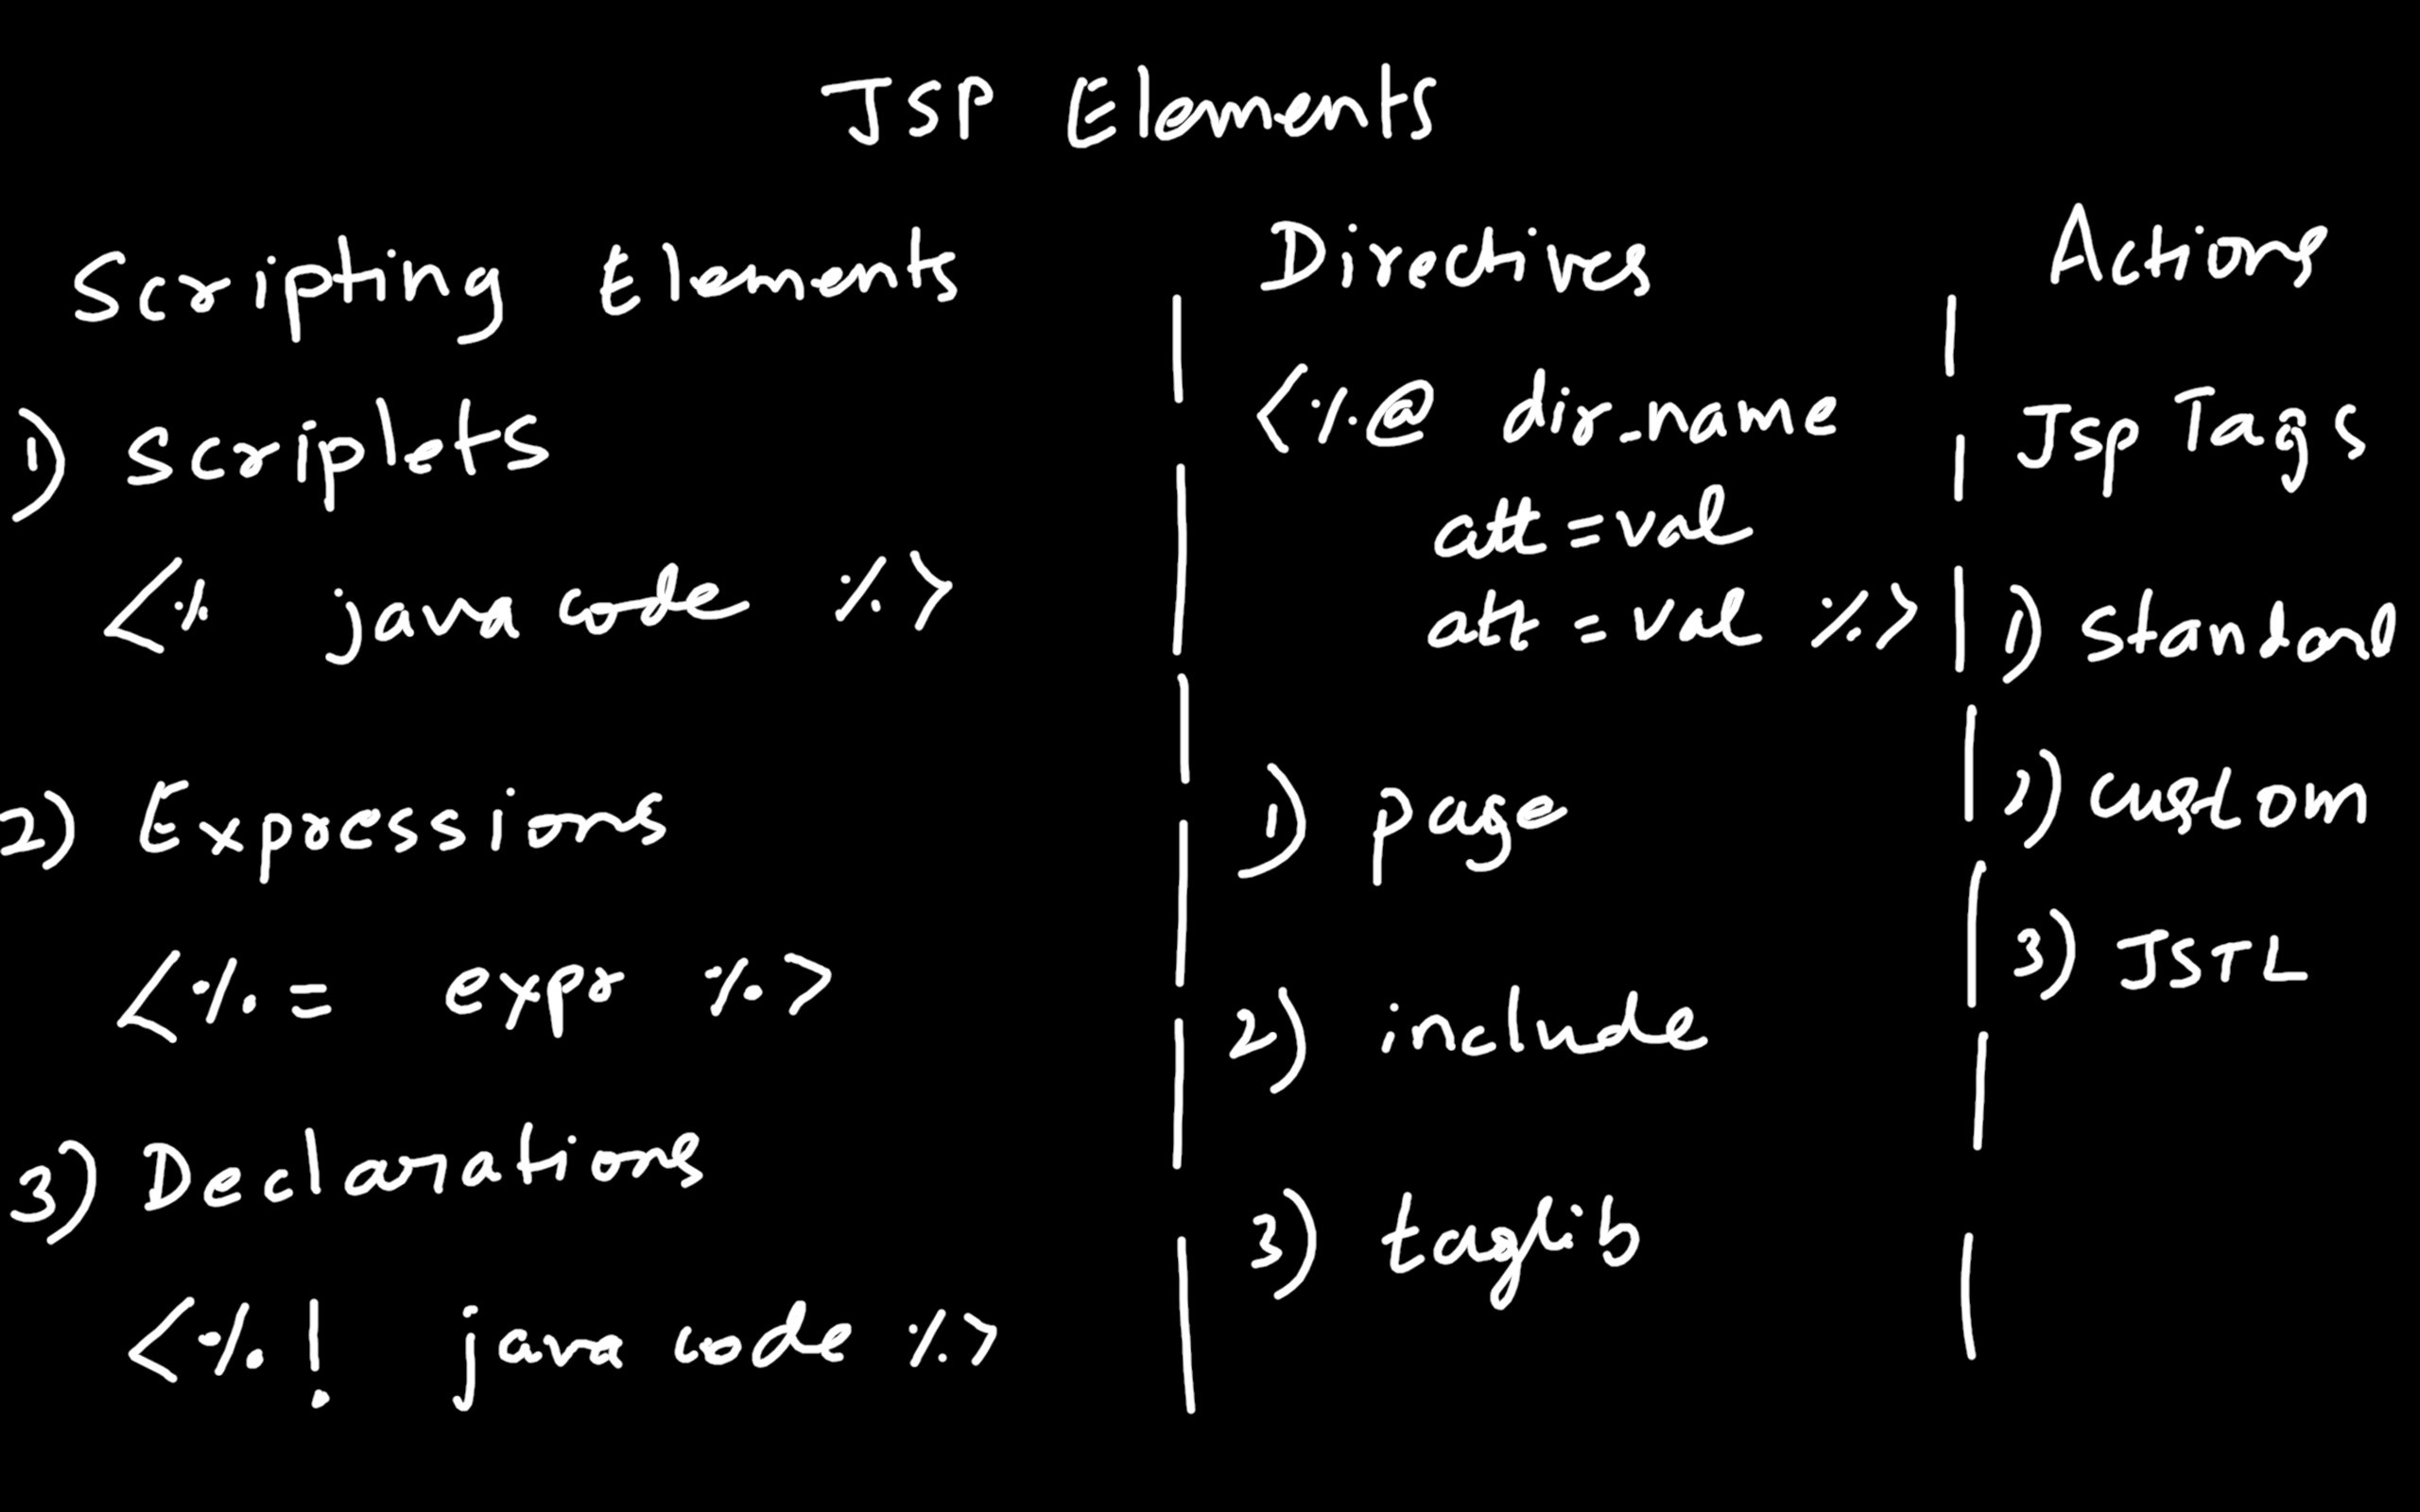 JSP Elements
Scripting Elements
1) Scriplets
<% java code %>
2) Expressions
<%= expr %>
3) Declarations
<%! java code %>
Directives
<%@ dir_name
att = val
att = val %>
1) page
2) include
3) taglib
Actions
Jsp Tags
1) Standard
2) custom
3) JSTL